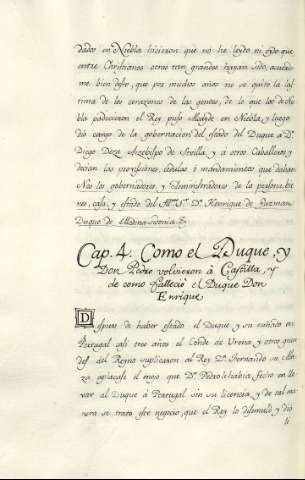 dados en Niebla hicieron que no he leydo ni oydo que
entre Christianos otras tan grandes hayan sido, acuerdo
me bien desto, que por muchos años no se quitó la las-
tima de los corazones de las gentes, de lo que los de Nie-
bla padecieron el Rey puso Alcayde en Niebla, y luego
dió cargo de la gobernacion del estado del Duque á Dn
Diego Deza Arzobispo de Sevilla, y á otros Caballeros, y
decian las provisiones, cedulas ó mandamientos que daban
Nos los gobernadores, y Administradores de la persona, bie-
nes, casa, y estado del Sr. Dn. Henrique de Guzman
Duque de Medina sidonia &
Cap. 4. Como el Duque, y
Don Pedro volvieron á Castilla, y
de como falleció el Duque Don
Enrique
Despues de haber estado el Duque y su cuñado en
Portugal casi tres años el Conde de Urena, y otros gran-
des del Reyno suplicaron al Rey Dn. Fernando su Al-
teza aplacase el enojo que Dn. Pedro le habia fecho en lle-
var al Duque á Portugal sin su licencia, y de tal ma-
nera se trató este negocio, que el Rey lo disimuló, y dió
li